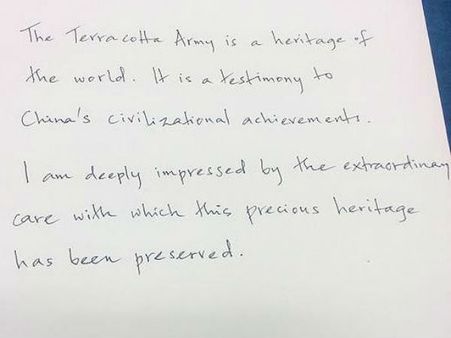 The Terracotta Army is a heritage of
the world. It is a testimony to
China's civilizational achievements.
I am deeply impressed by the extraordinary
care with which this precious heritage
has been preserved.